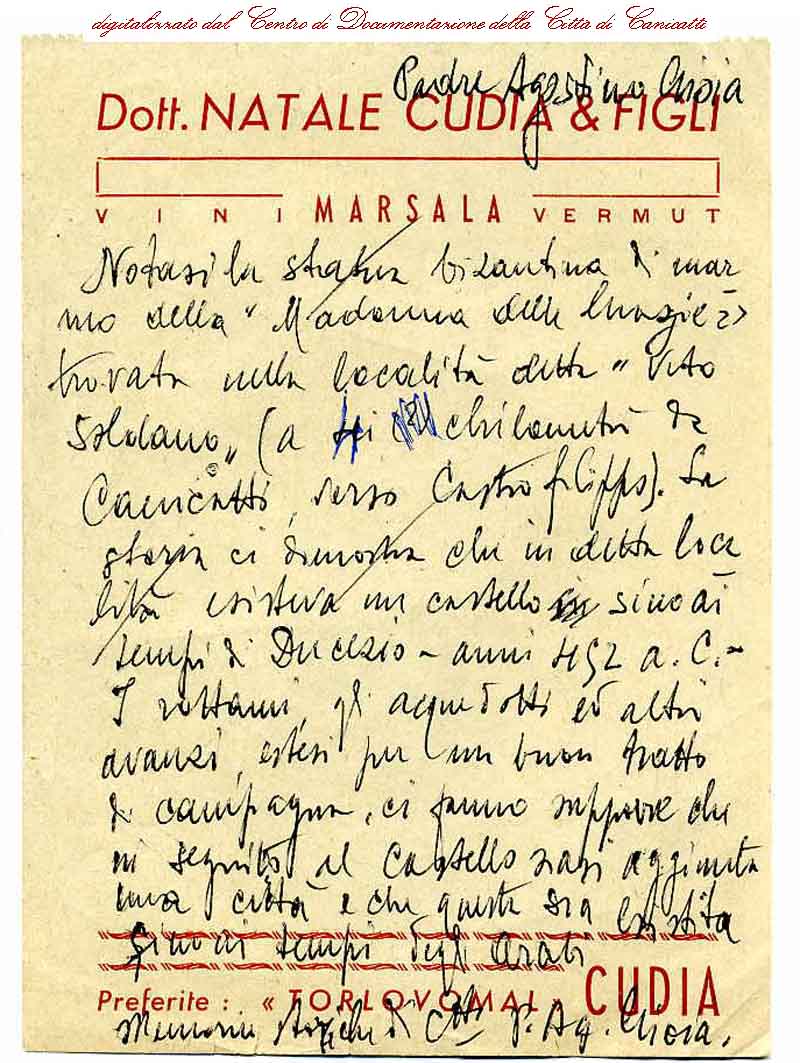 digitalizzato dal Centro di Documentazione della Città di Canicattì
Padre Agostino Chioia
Dott. NATALE CUDIA & FIGLI
VINI MARSALA VERMUT
Notasi la statua bizantina di mar
mo della "Madonna delle Grazie"
trovata nella località detta "Vito
Soldano" (a chilometri da
Canicattì, verso Castrofilippo). La
storia ci dimostra che in detta loca
lità esisteva un castello sino ai
tempi di Ducezio - anni 452 a. C. -
I rottami, gli acquedotti ed altri
avanzi, estesi per un buon tratto
di campagna, ci fanno supporre che
in seguito al castello siasi aggiunta
una città e che questa sia esistita
sino ai tempi degli arabi
Preferite: « TORLOVOMAL » CUDIA
Memorie di P. Ag. Chioia.